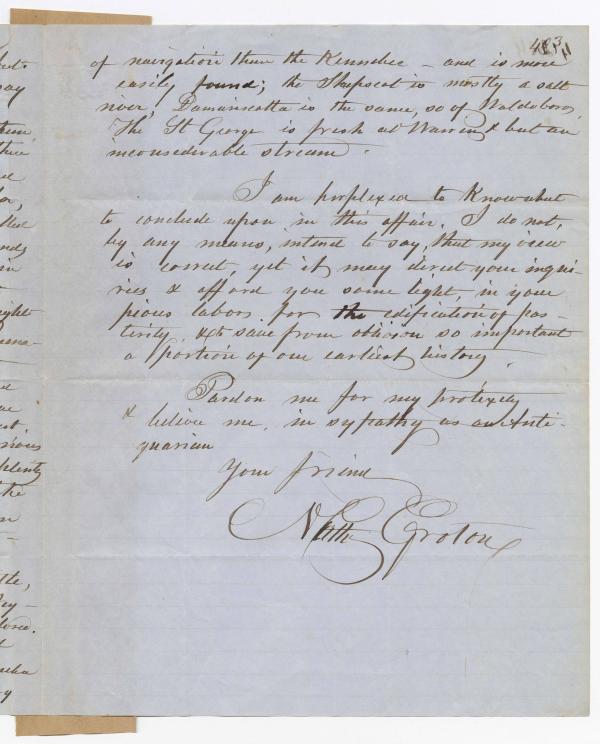 of navigation than the Kennebec - and is more
easily found; the Shepscot is mostly a salt
river, Damariscotta is the same, so of Waldoboro,
The St George is fresh at Warren & but an
inconsederable stream.
I am perplexed to know what
to conclude upon in this affair. I do not,
by any means, intend to say, that my view
is correct, yet it may direct your inqui-
ries & afford you some light, in your
pious labors for the edification of pos-
terity, & to save from oblivion so important
a portion of our earliest history.
Pardon me for my prolixity
& believe me, in sypathy as an Anti-
quarian
Your friend
Nath Groton